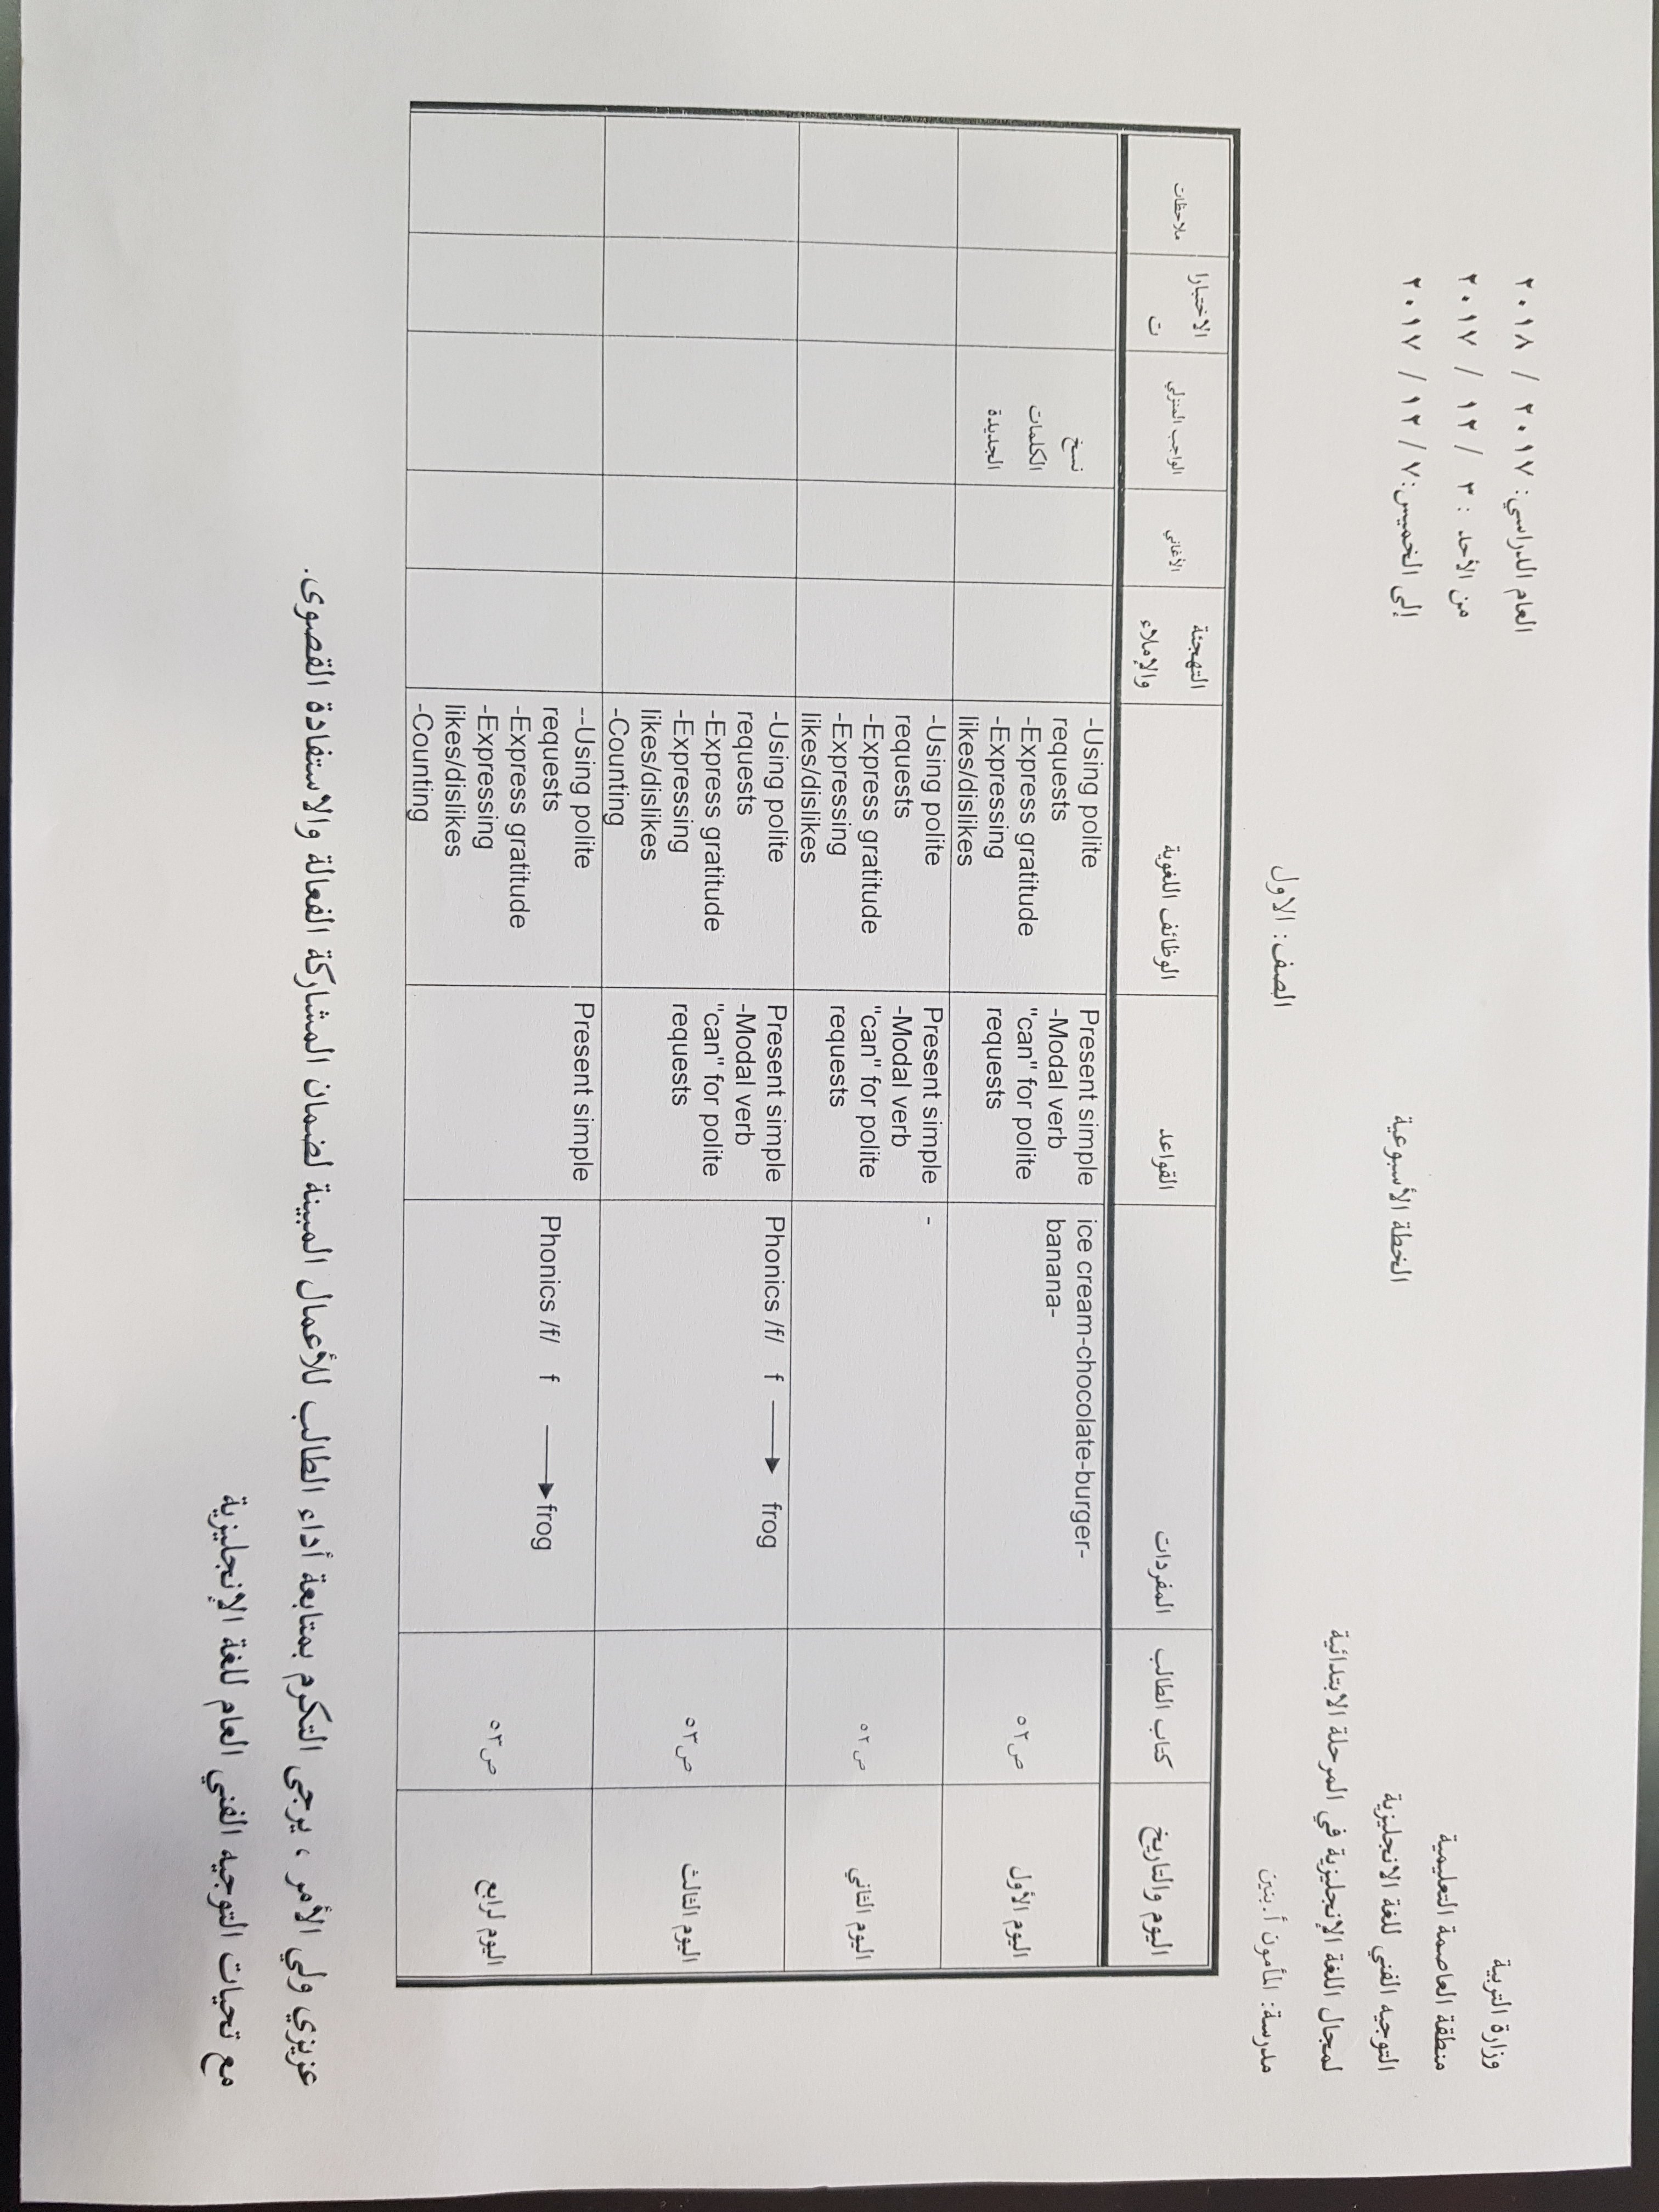 وزارة التربية
منطقة العاصمة التعليمية
التوجيه الفني للغة الانجليزية
لمجال اللغة الإنجليزية في المرحلة الابتدائية
مدرسة: المأمون أ.بنين
الخطة الأسبوعية
الصف: الاول
العام الدراسي: ٢٠١٧ / ٢٠١٨
من الأحد : ٣ / ١٢ / ٢٠١٧
إلى الخميس:٧ / ١٢ / ٢٠١٧
اليوم والتاريخ
كتاب الطالب
المفردات
القواعد
الوظائف اللغوية
التهجئة
والإملاء
الأغاني
الواجب المنزلي
الاختبارا
ت
ملاحظات
اليوم الأول
ص٥٢
ice cream-chocolate-burger-
banana-
Present simple
-Modal verb
"can" for polite
requests
-Using polite
requests
-Express gratitude
-Expressing
likes/dislikes
نسخ
الكلمات
الجديدة
اليوم الثاني
ص٥٢
-
Present simple
-Modal verb
"can" for polite
requests
-Using polite
requests
-Express gratitude
-Expressing
likes/dislikes
اليوم الثالث
ص٥٣
Phonics /f/ f → frog
Present simple
-Modal verb
"can" for polite
requests
-Using polite
requests
-Express gratitude
-Expressing
likes/dislikes
-Counting
اليوم لرابع
ص٥٣
Phonics /f/ f → frog
Present simple
--Using polite
requests
-Express gratitude
-Expressing
likes/dislikes
-Counting
عزيزي ولي الأمر ، يرجى التكرم بمتابعة أداء الطالب للأعمال المبينة لضمان المشاركة الفعالة والاستفادة القصوى.
مع تحيات التوجيه الفني العام للغة الإنجليزية